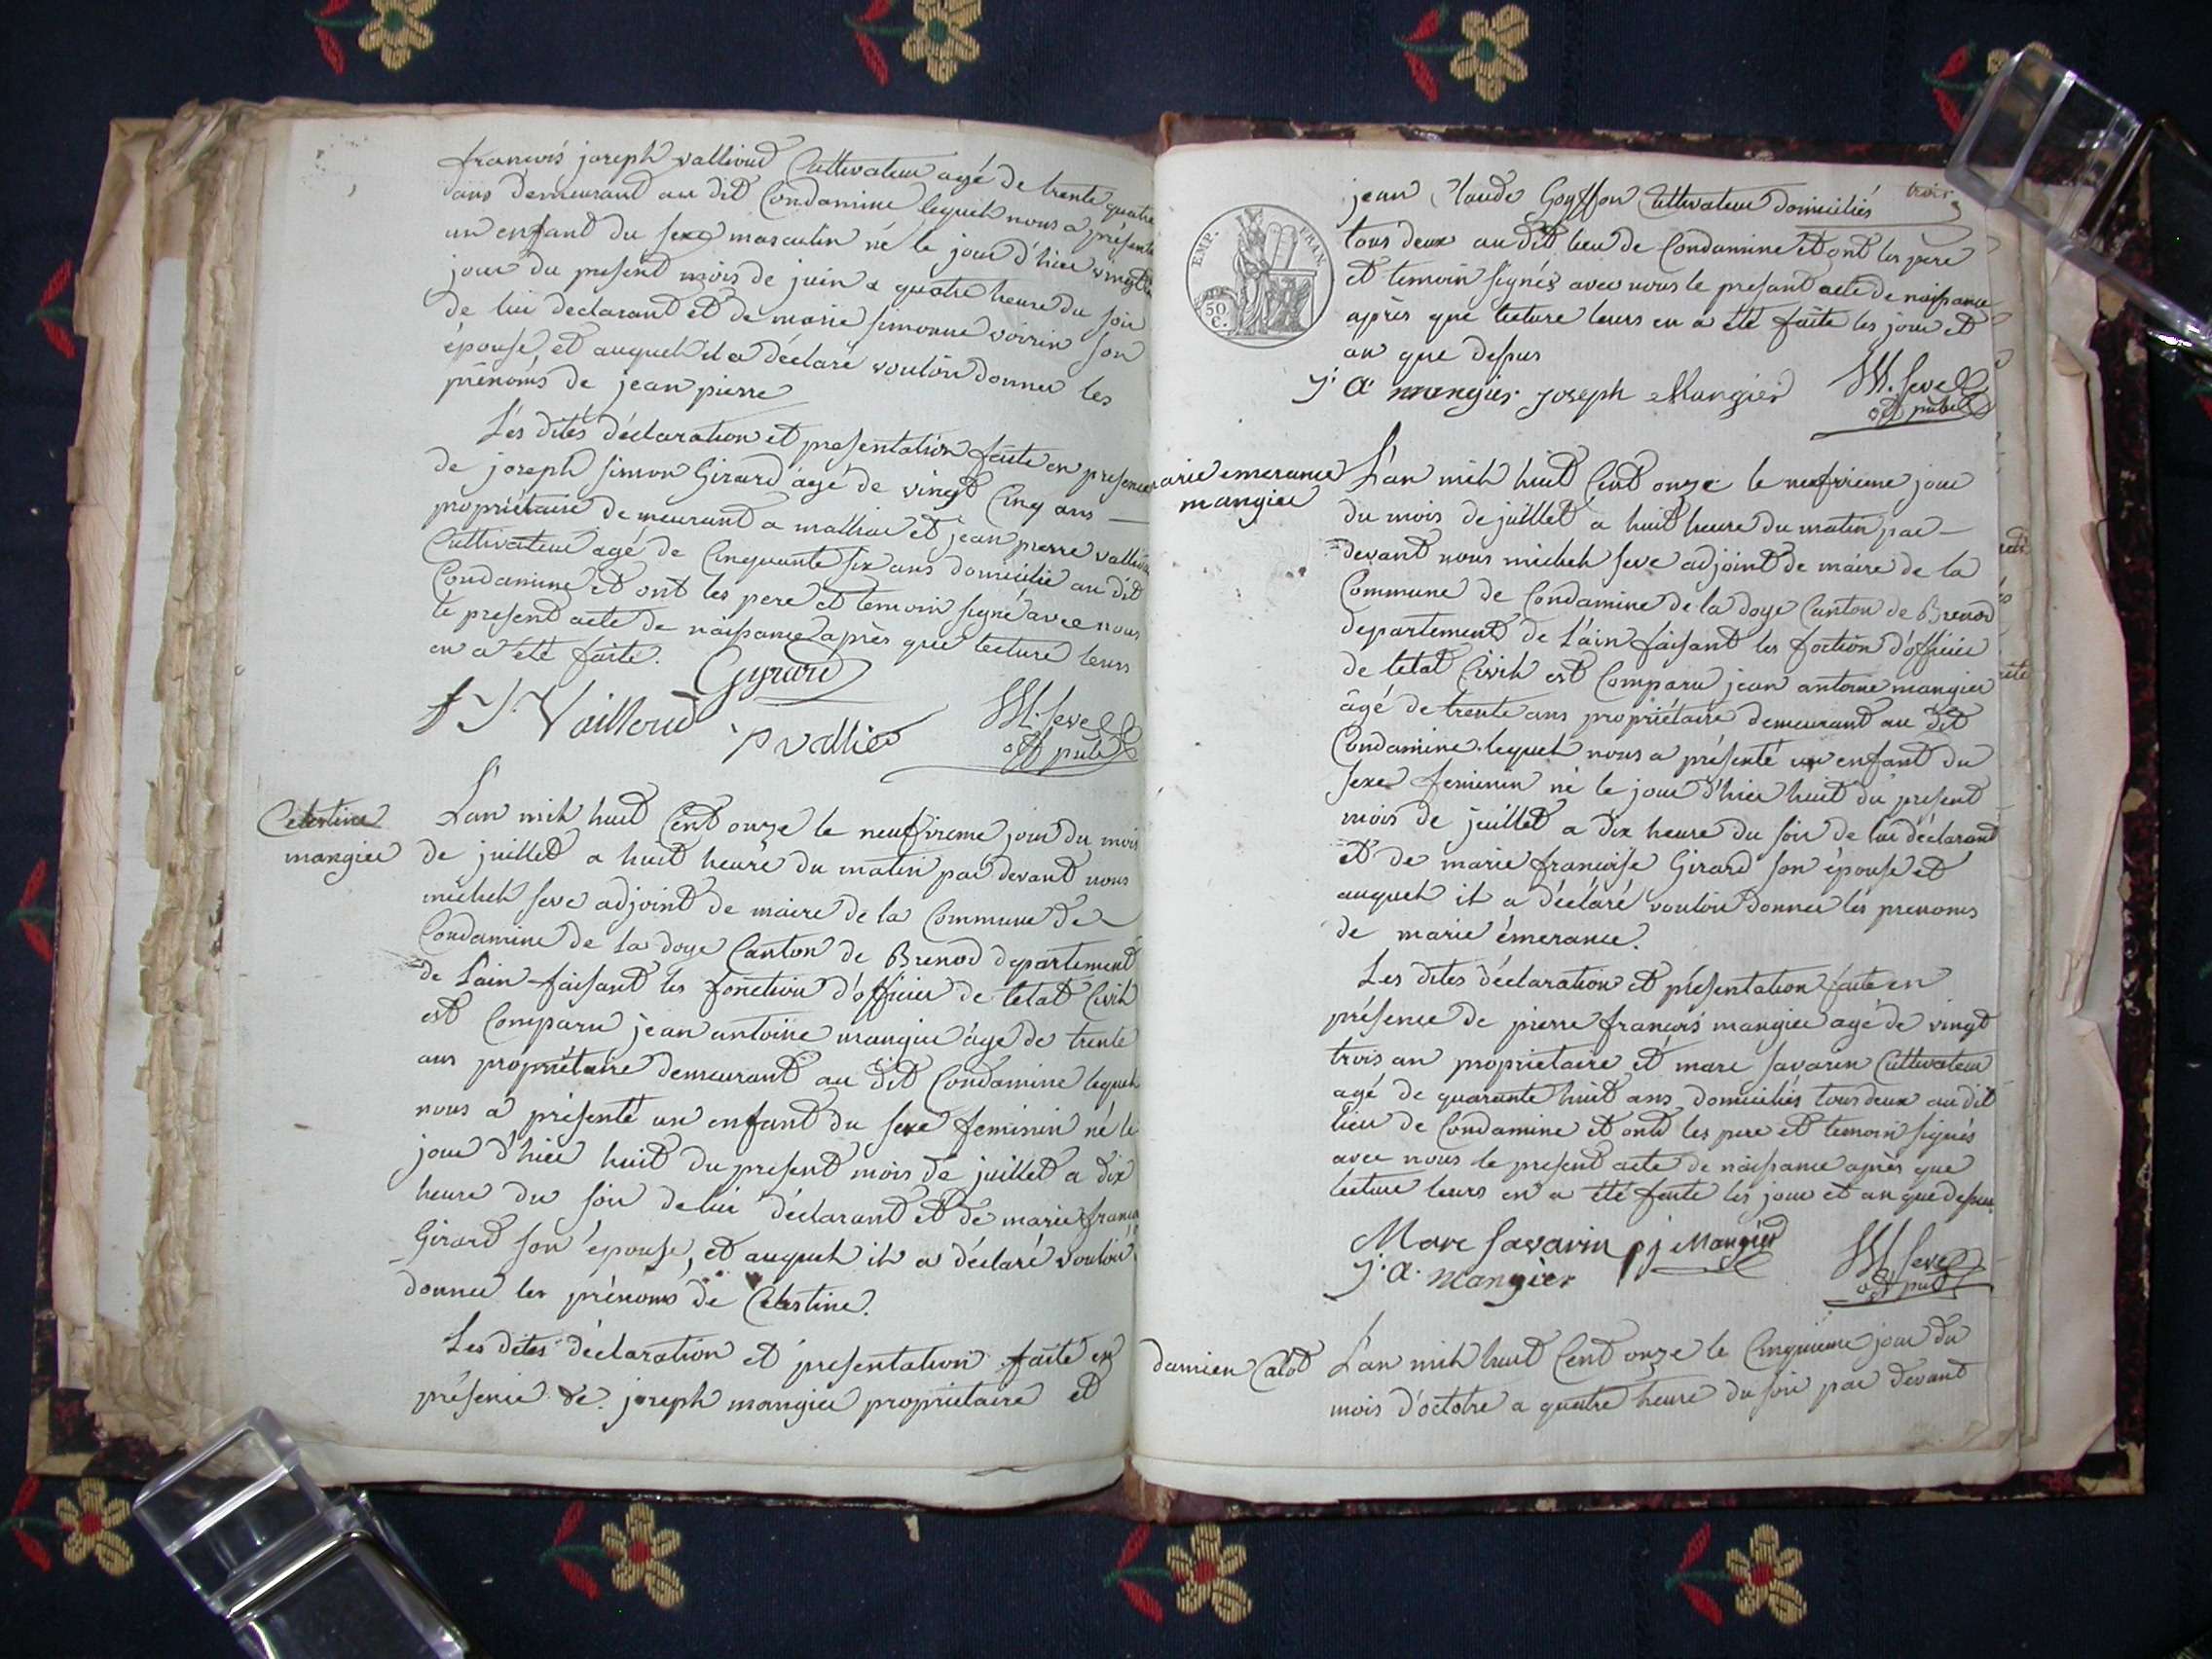 francois joseph vallioud Cultivateur agé de trente quatre
ans demeurant au dit Condamine lequel nous a présenté
un enfant du sexe masculin né le jour d'hier vingt
jour du present mois de juin a quatre heure du soir
de lui declarant et de marie simonne voirin son
épouse, et auquel il a déclaré vouloir donner les
prénoms de jean pierre
Les dites déclaration et presentation faite en presence
de joseph simon Girard âgé de vingt Cinq ans
propriétaire demeurant a malliac et jean pierre
Cultivateur agé de Cinquante six ans domicilié au dit
Condamine et ont les pere et temoin signé avec nous
le present acte de naissance après que lecture leurs
en a été faite.
Gyrard
f J Vailloud
p vallied
M. Seve
off pub
Celestine
mangier
L'an mil huit Cent onze le neufvieme jour du mois
de juillet a huit heure du matin par devant nous
michel seve adjoint de maire de la Commune de
Condamine de la doye Canton de Brenod departement
de l'ain faisant les fonction d'officier de letat Civil
est Comparu jean antoine mangier âgé de trente
ans propriétaire demeurant au dit Condamine lequel
nous a présenté un enfant du sexe feminin né le
jour d'hier huit du present mois de juillet a dix
heure du soir de lui déclarant et de marie
Girard son épouse, et auquel il a déclaré vouloir
donner les prénoms de Celestine.
Les dites déclaration et présentation faite en
présence de joseph mangier propriétaire et
trois
EMP. FRAN.
50 C.
jean Claude Goyffon Cultivateur domiciliés
tous deux au dit lieu de Condamine et ont les père
et temoin signés avec nous le present acte de naissance
après que lecture leurs en a été faite les jour et
an que dessus
j. a. mangier joseph Mangier
M. Seve
off publ
arie emerance
mangier
L'an mil huit Cent onze le neufvieme jour
du mois de juillet a huit heure du matin par
devant nous michel seve adjoint de maire de la
Commune de Condamine de la doye Canton de Brenod
departement de l'ain faisant les foction d'officier
de letat Civil est Comparu jean antoine mangier
âgé de trente ans propriétaire demeurant au dit
Condamine lequel nous a présenté un enfant du
sexe feminin né le jour d'hier huit du present
mois de juillet a dix heure du soir de lui déclarant
et de marie francoise Girard son épouse et
auquel il a déclaré vouloir donner les prenoms
de marie émerance.
Les dites déclaration et présentation faite en
présence de pierre francois mangier agé de vingt
trois an proprietaire et marc savarin Cultivateur
agé de quarante huit ans domiciliés tous deux au dit
lieu de Condamine et ont les pere et temoin signés
avec nous le present acte de naissance après que
lecture leurs en a été faite les jour et an que dessus
Marc Savarin p j Mangier
j. a. mangier
M Seve
off publ
damien Calot
L'an mil huit Cent onze le Cinquieme jour du
mois d'octobre a quatre heure du soir par devant